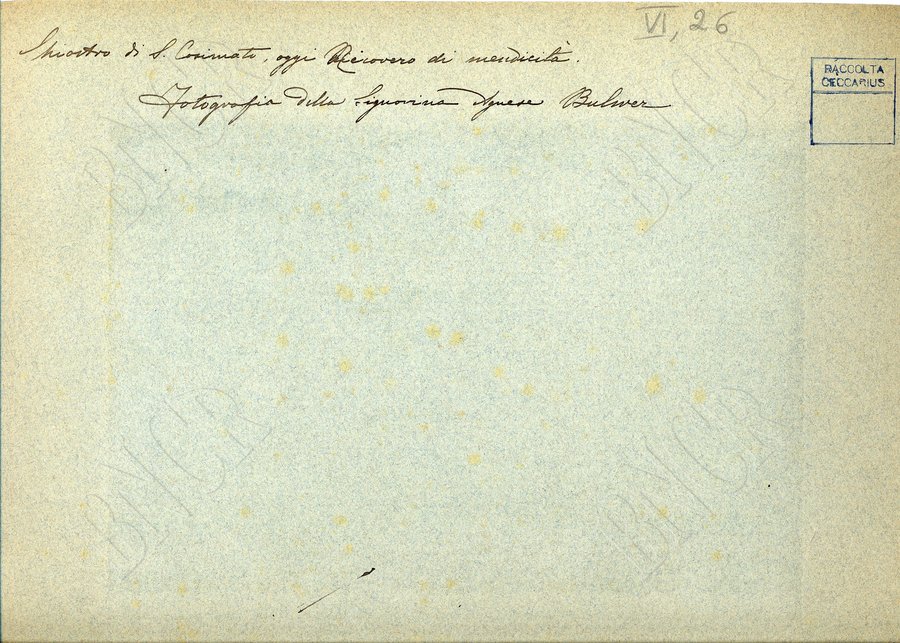 VI, 26
Chiostro di S. Cosimato, oggi Ricovero di mendicità.
Fotografia della Signorina Agnese Bulwer
RACCOLTA
CECCARIUS
BNCR
BNCR
BNCR
BNCR